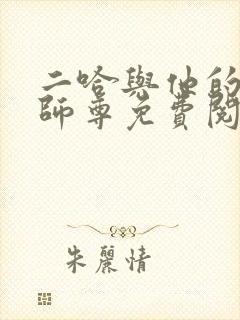 二哈與他的
師尊免費閱
朱麗情